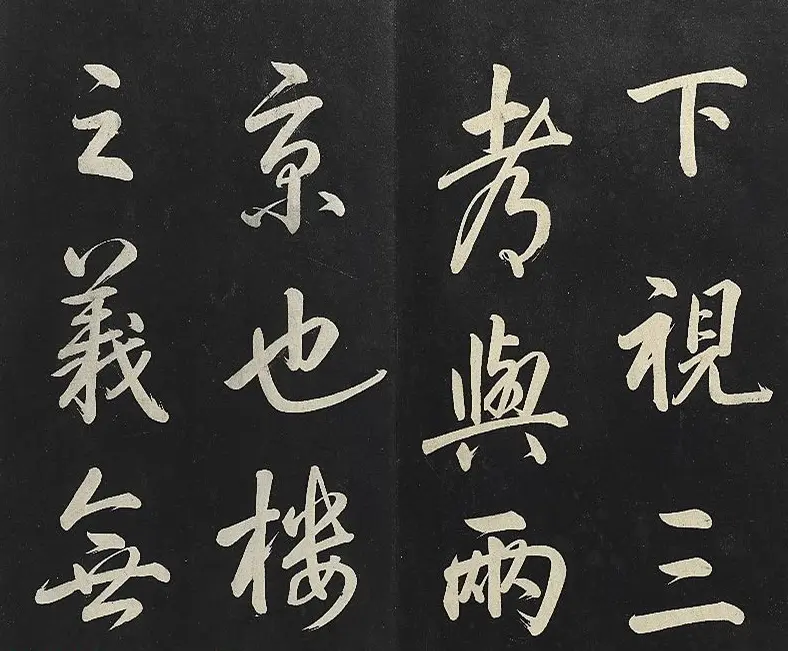 下視三
考與兩
京也樓
之義無